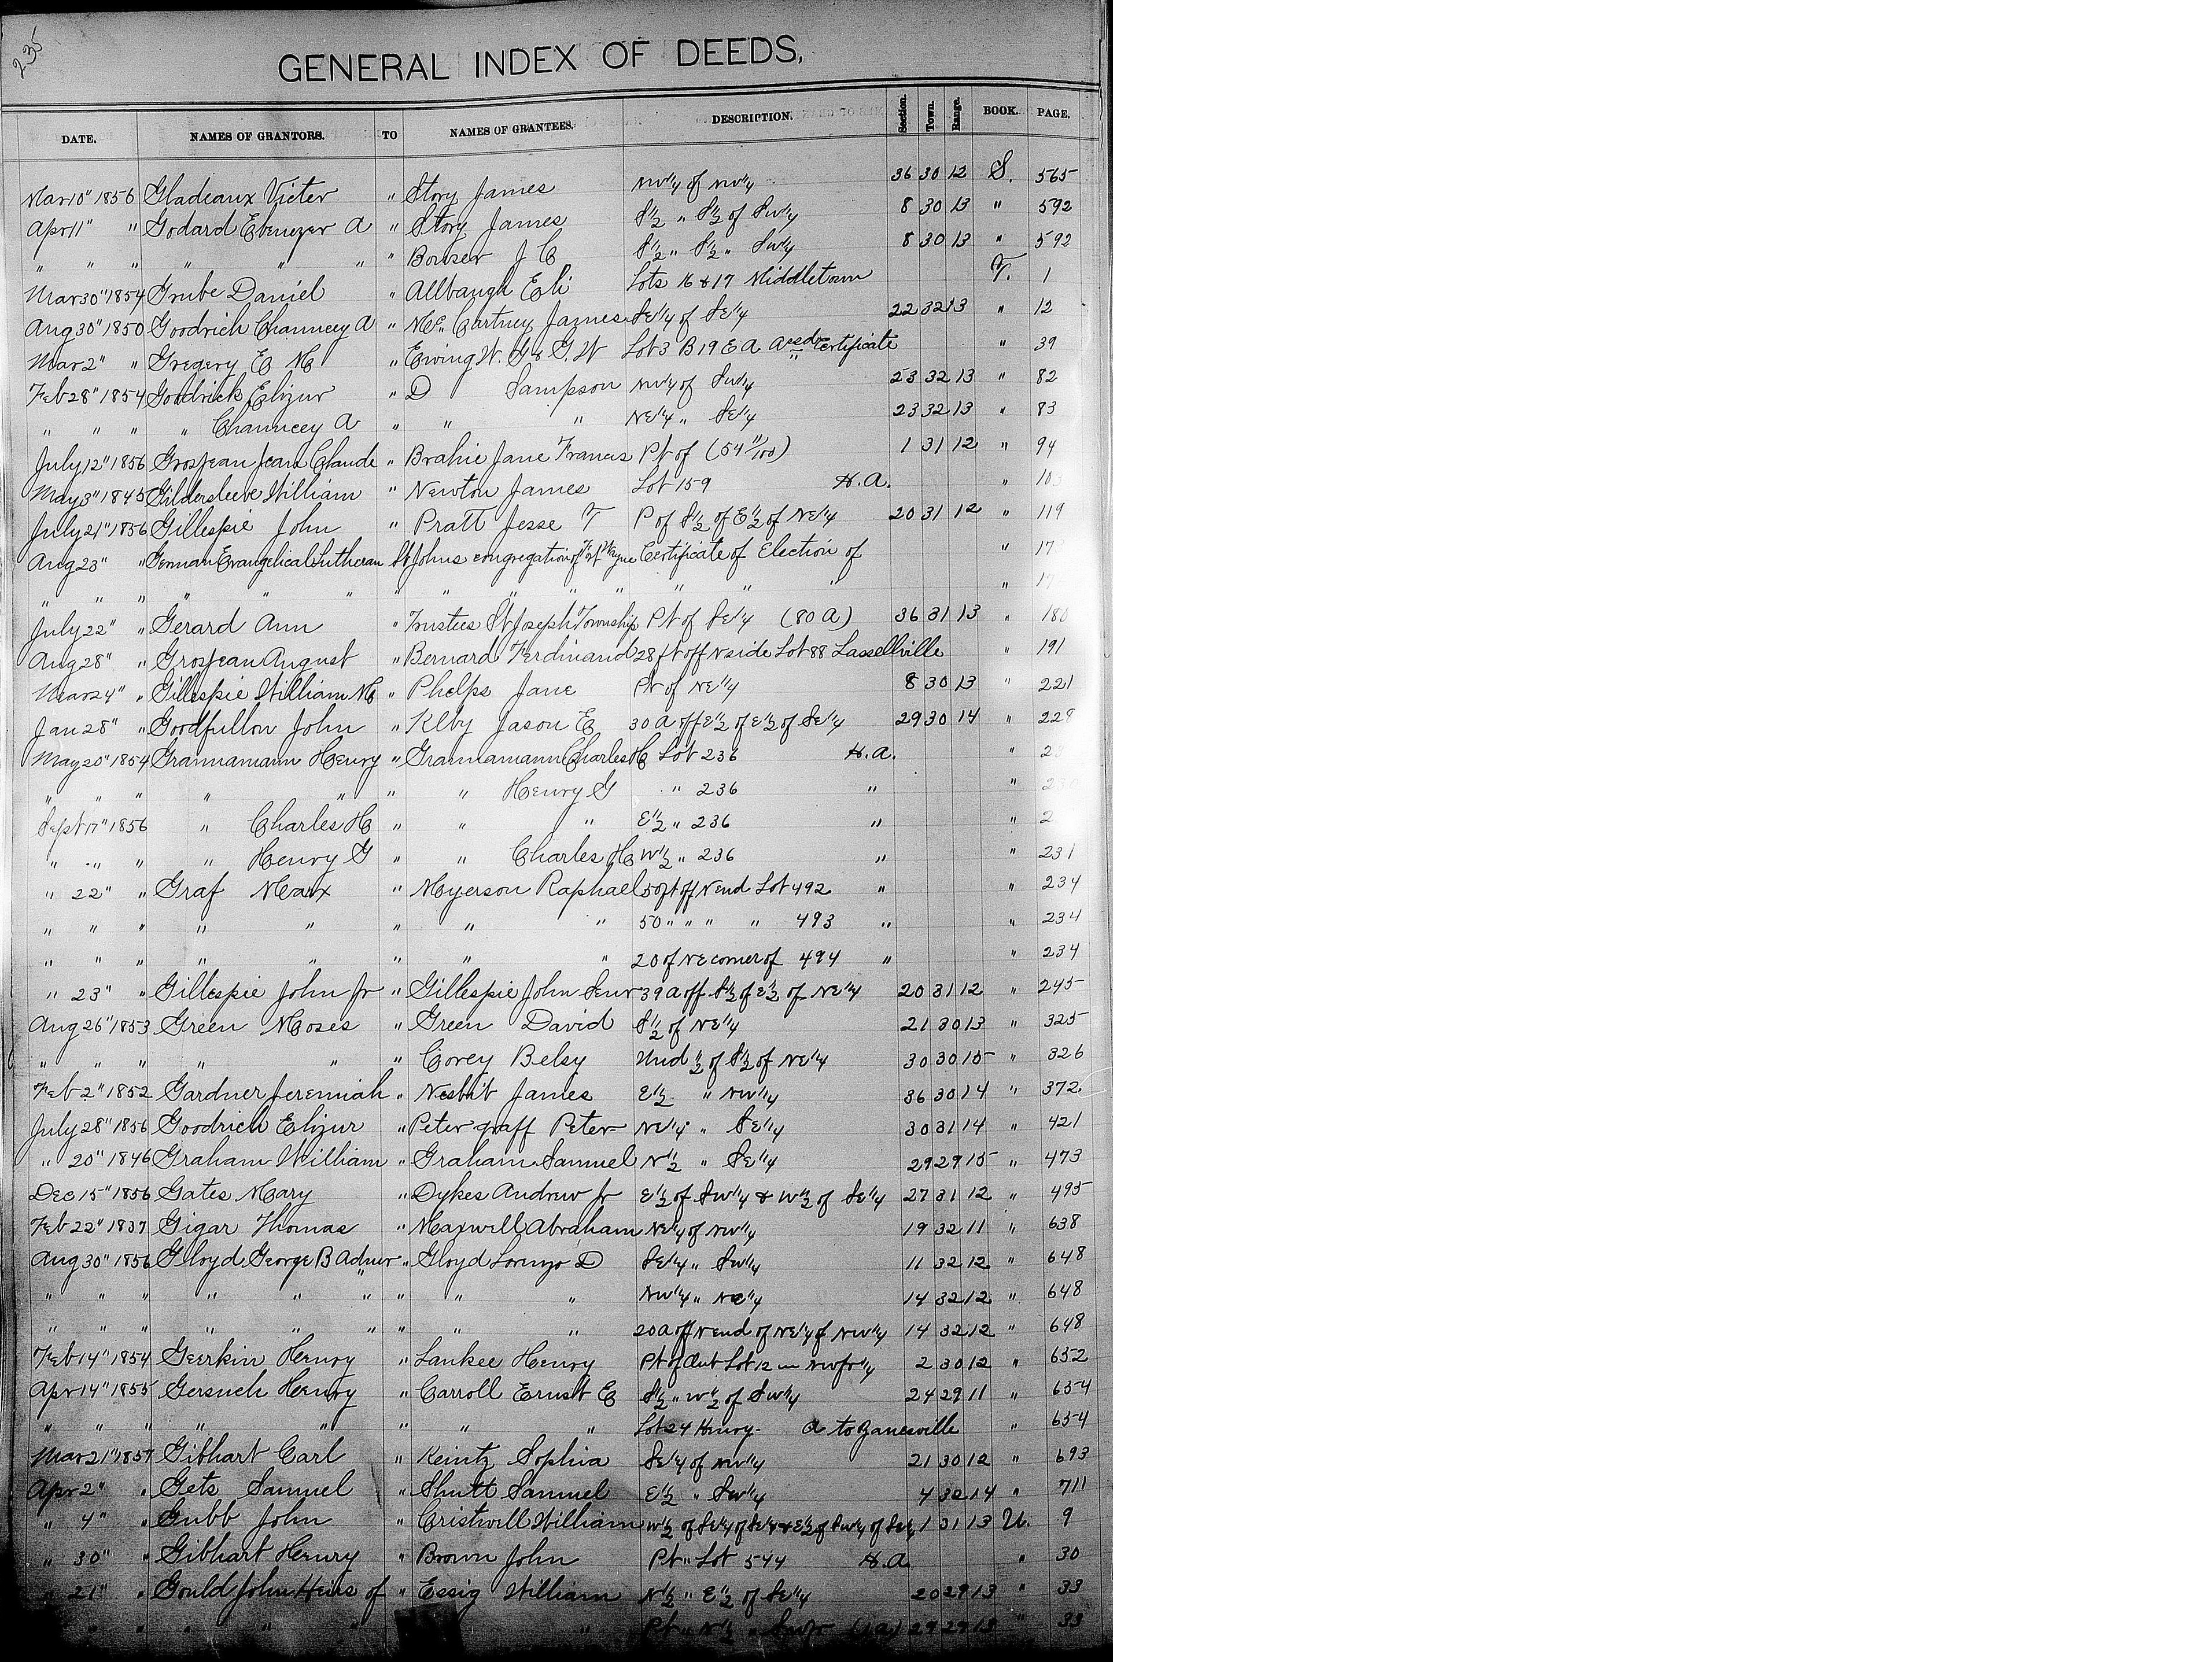 235
GENERAL INDEX OF DEEDS,
DATE. NAMES OF GRANTORS. TO NAMES OF GRANTEES. DESCRIPTION. Section. Town. Range. BOOK. PAGE.
Mar 10" 1856 Gladeaux Victer " Story James NW 1/4 of NW 1/4 36 30 12 S. 565
Apr 11" " Godard Ebenezer A " Story James S 1/2 " S 1/2 of SW 1/4 8 30 13 " 592
" " " " " " " Bowser J C S 1/2 " S 1/2 " SW 1/4 8 30 13 " 592
Mar 30" 1854 Grube Daniel " Allbaugh Eli Lots 16 & 17 Middletown T. 1
Aug 30" 1850 Goodrich Chauncey A " McCartney James SE 1/4 of SE 1/4 22 32 13 " 12
Mar 2" " Gregery E M " Ewing W. G & G. W Lot 3 B 19 E A Certificate " 39
Feb 28" 1854 Goodrick Elizur " D Sampson NW 1/4 of SW 1/4 23 32 13 " 82
" " " " Chauncey A " " " NE 1/4 " SE 1/4 23 32 13 " 83
July 12" 1856 Grosjean Jean Claude " Brahie Jane Francis Pt of (54 11/100) 1 31 12 " 94
May 3" 1845 Gildersleeve William " Newton James Lot 159 H.A. "
July 21" 1856 Gillespie John " Pratt Jesse T P of S 1/2 of E 1/2 of NE 1/4 20 31 12 " 119
Aug 23" " German Evangelical Lutheran St Johns congregation of Fort Wayne Certificate of Election of " 17
" " " " " " " " " " " " " " 17
July 22" " Gerard Ann " Trustees St Joseph Township Pt of SE 1/4 (80 A) 36 31 13 " 180
Aug 28" " Grosjean August " Bernard Ferdinand 28 ft off N side Lot 88 Lassellville " 191
Mar 24" " Gillespie William M " Phelps Jane Pt of NE 1/4 8 30 13 " 221
Jan 28" " Goodfullon John " Klby Jason E 30 A off E 1/2 of E 1/2 of SE 1/4 29 30 14 " 229
May 20" 1854 Grannamann Henry " Grannamann Charles H Lot 236 H.A. " 23
" " " " " " " Henry G " 236 " "
Sept 17" 1856 " Charles H " " " E 1/2 " 236 " " 2
" " " " Henry G " " Charles H W 1/2 " 236 " " 231
" 22" " Graf Marx " Myerson Raphael 50 ft off N end Lot 492 " " 234
" " " " " " " " 50 " " " " 493 " " 234
" " " " " " " " 20 of NE corner of 494 " " 234
" 23" " Gillespie John Jr " Gillespie John Senr 39 A off S 1/2 of E 1/2 of NE 1/4 20 31 12 " 245
Aug 26" 1853 Green Moses " Green David S 1/2 of NE 1/4 21 30 13 " 325
" " " " " " Corey Belsy Und 1/2 of S 1/2 of NE 1/4 30 30 15 " 326
Feb 2" 1852 Gardner Jeremiah " Nesbit James E 1/2 " NW 1/4 36 30 14 " 372
July 28" 1856 Goodrich Elizur " Peter graff Peter NE 1/4 " SE 1/4 30 31 14 " 421
" 20" 1846 Graham William " Graham Samuel N 1/2 " SE 1/4 29 29 15 " 473
Dec 15" 1856 Gates Mary " Dykes Andrew Jr E 1/2 of SW 1/4 & W 1/2 of SE 1/4 27 31 12 " 495
Feb 22" 1837 Gigar Thomas " Maxwell Abraham NE 1/4 of NW 1/4 19 32 11 " 638
Aug 30" 1856 Gloyd George B Admr " Gloyd Lorenzo D SE 1/4 " SW 1/4 11 32 12 " 648
" " " " " " " " " NW 1/4 " NE 1/4 14 32 12 " 648
" " " " " " " " " 20 A off N end of NE 1/4 of NW 1/4 14 32 12 " 648
Feb 14" 1854 Geerkin Henry " Lankee Henry Pt of Out Lot 12 in NW fr 1/4 2 30 12 " 652
Apr 14" 1855 Gersuch Henry " Carroll Ernst E S 1/2 " W 1/2 of SW 1/4 24 29 11 " 654
" " " " " " " " Lot 24 Henry A to Zanesville " 654
Mar 21" 1857 Gibhart Carl " Keintz Sophia SE 1/4 of NW 1/4 21 30 12 " 693
Apr 2" " Gets Samuel " Shutt Samuel E 1/2 " SW 1/4 4 32 14 " 711
" 4" " Gubb John " Cristwill William W 1/2 of SE 1/4 of SE 1/4 & E 1/2 of SW 1/4 of SE 1/4 1 31 13 U. 9
" 30" " Gibhart Henry " Brown John Pt " Lot 544 H.A " 30
" 21" " Gould John Heirs of " Essig William N 1/2 " E 1/2 of SE 1/4 20 29 13 " 33
" " " " " " Pt " N 1/2 " 29 29 13 " 33